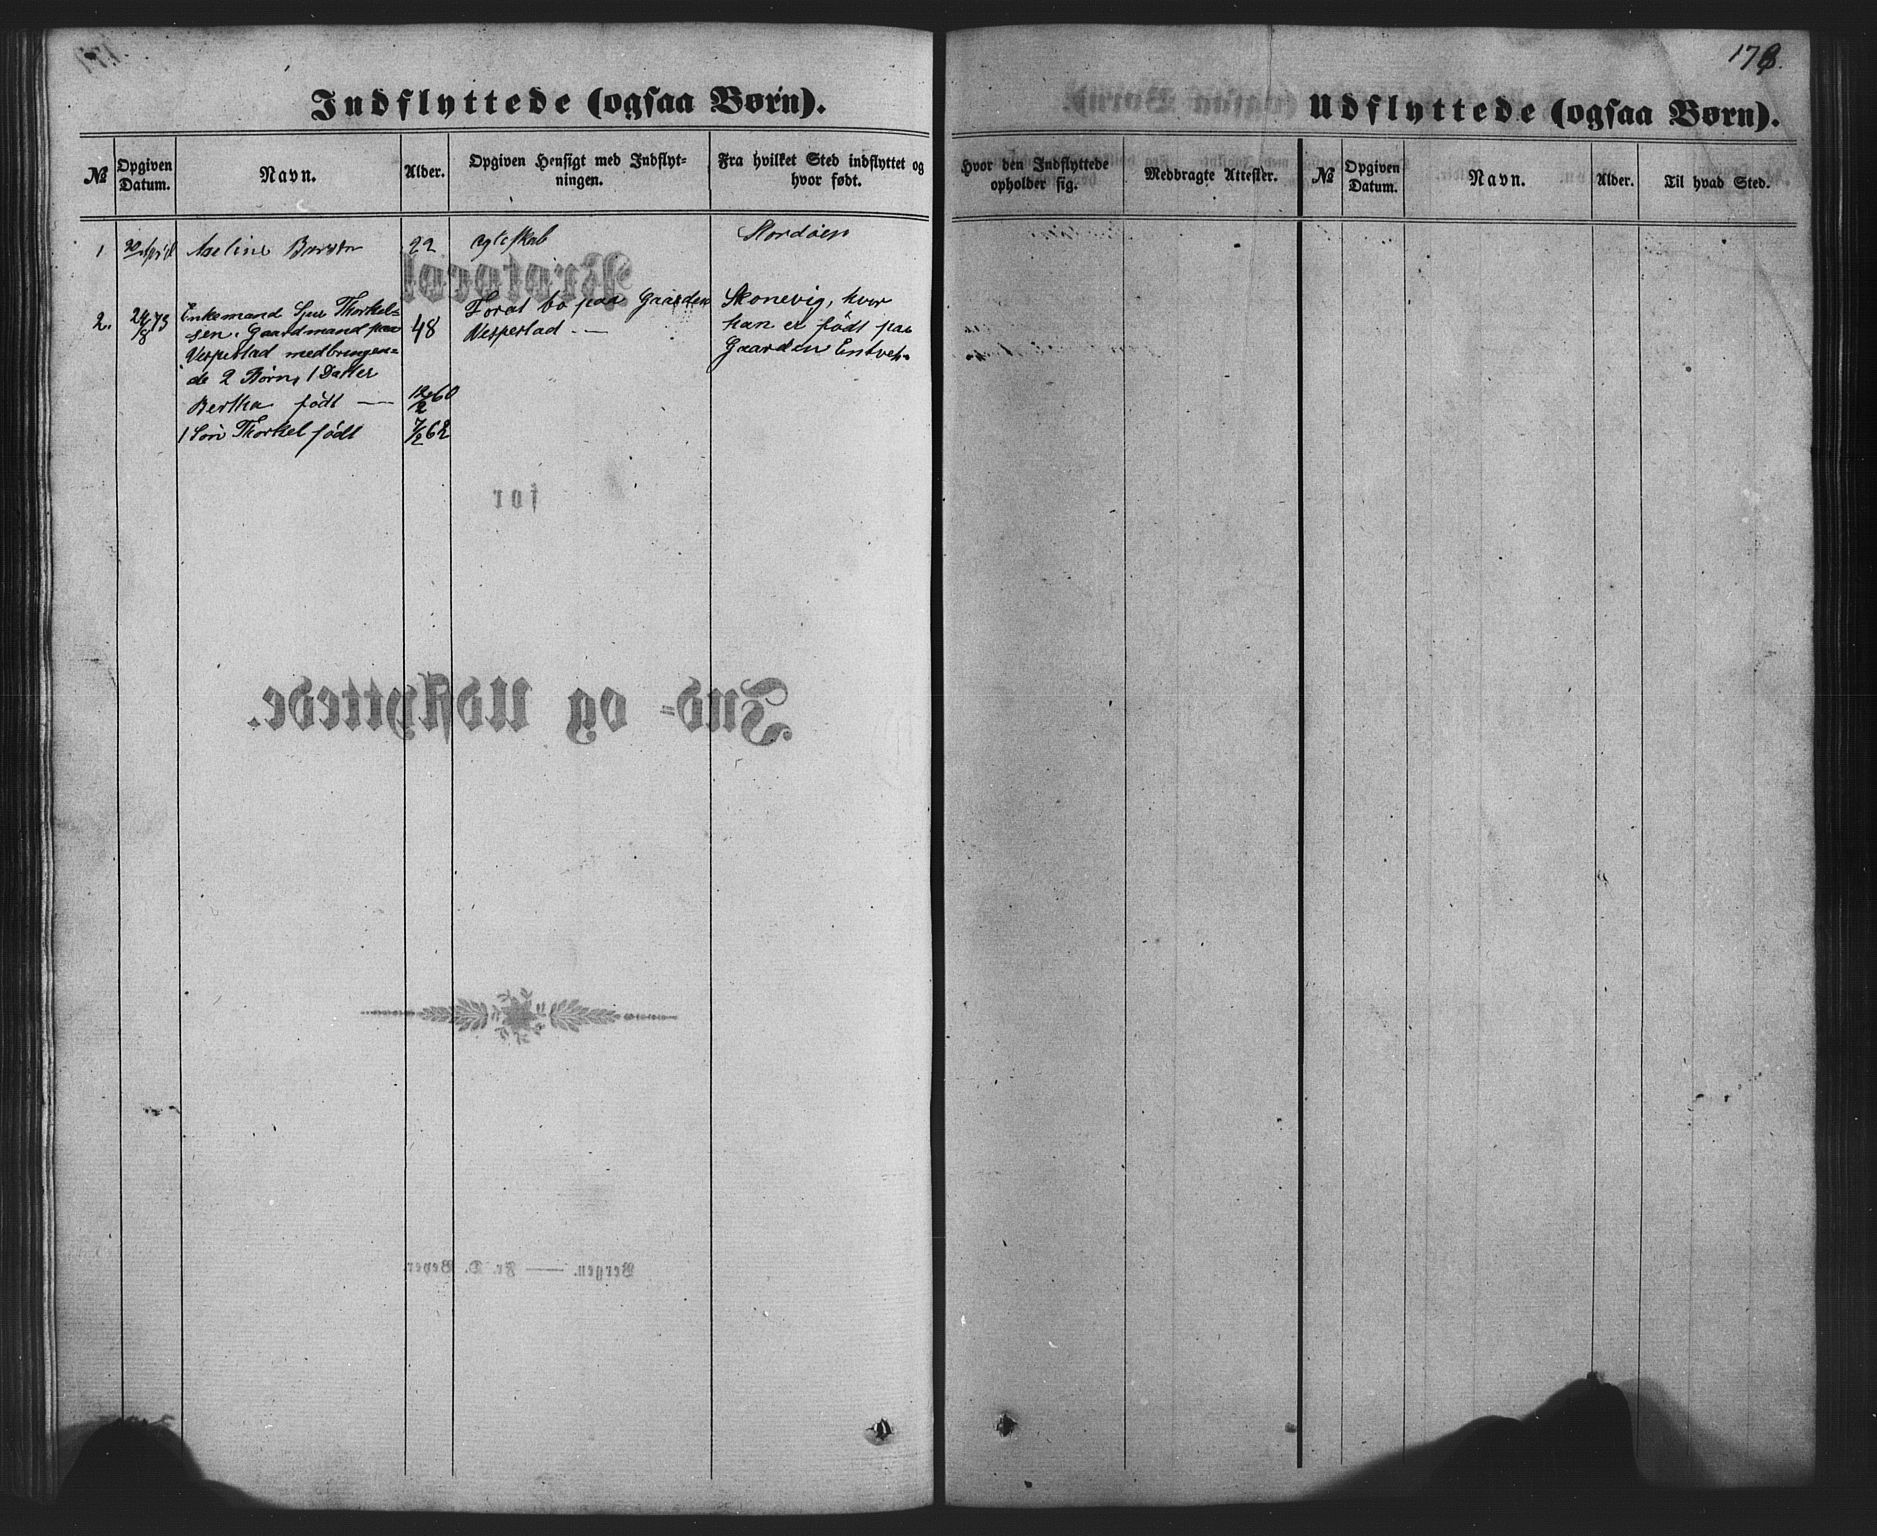 Indflyttede (ogsaa Børn).
№
Opgiven Datum.
Navn.
Alder.
Opgiven Hensigt med Indflyt-
ningen.
Fra hvilket Sted indflyttet og
hvor født.
1 30 April Aseline 22 Ægteskab Stordøen
2. 24/8 73 Enkemand Thorkel-
sen. Gaardmand paa
Vespestad medbringen=
de 2 Børn, 1 Datter
Bertha født — 12/2 60
1 Søn Thorkel født 7/2 62
48
For at bo paa Gaarden
Vespestad —
Skonevig, hvor
han er født paa
Gaarden
Protocol
for
Ind- og Udflyttede.
Bergen. — Fr. D. Beyer.
178.
Udflyttede (ogsaa Børn).
Hvor den Indflyttede
opholder sig.
Medbragte Attester.
№
Opgiven
Datum.
Navn.
Alder.
Til hvad Sted.